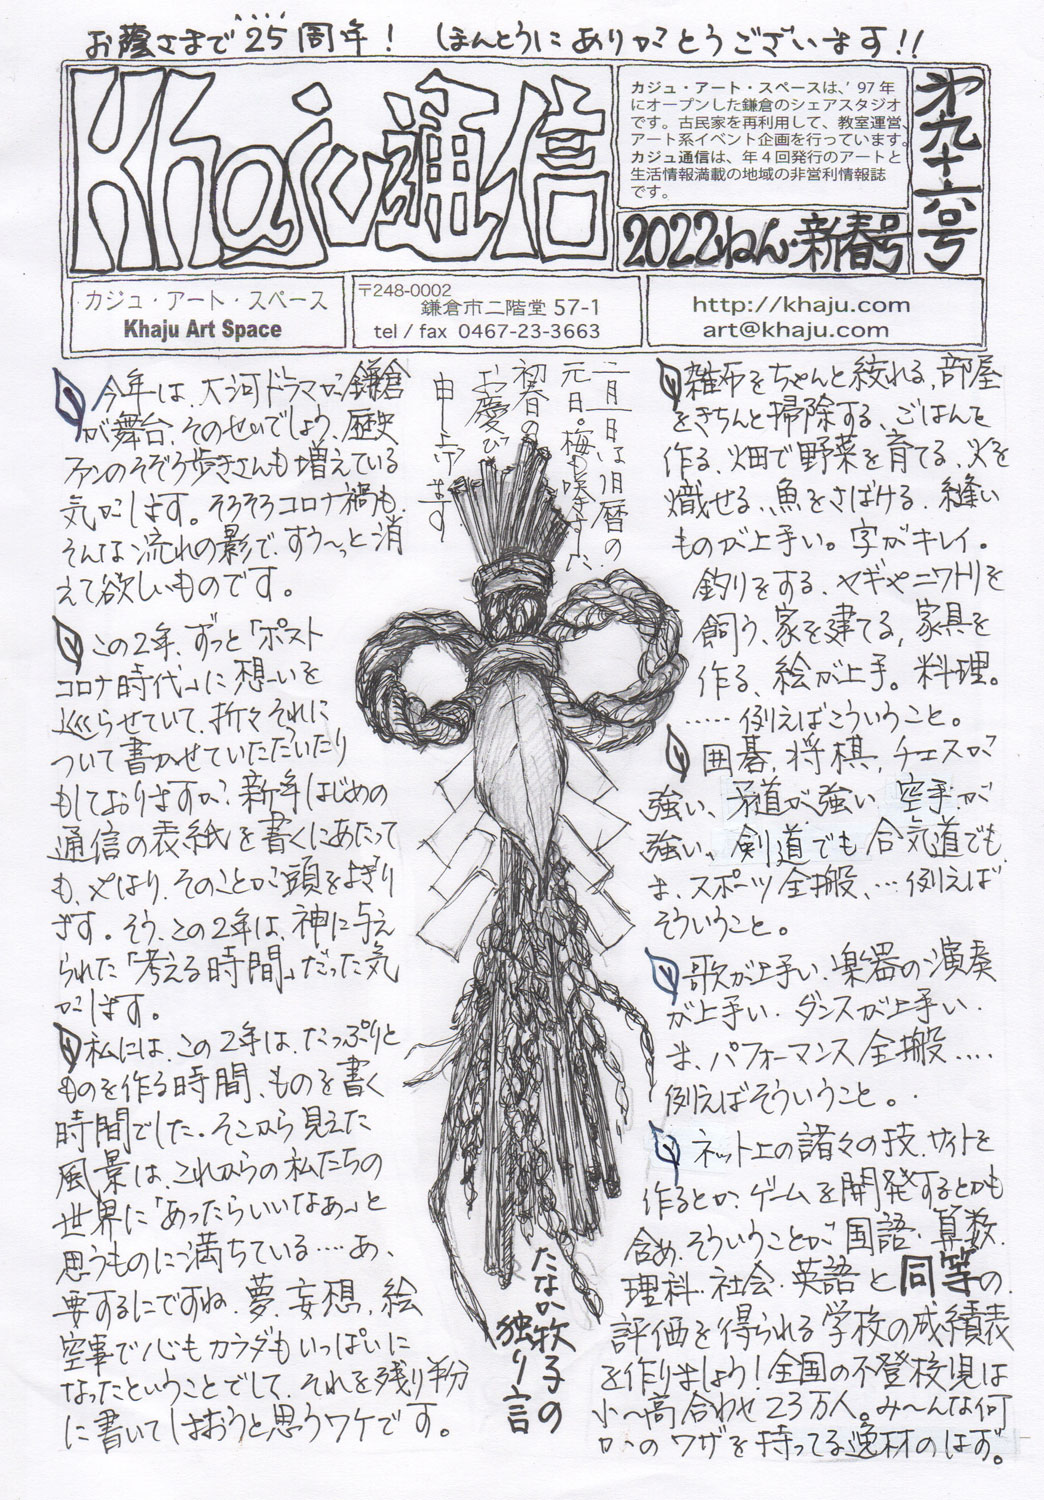 お蔭さまで25周年! ほんとうにありがとうございます!!
Khaju通信
カジュ・アート・スペースは、'97年
にオープンした鎌倉のシェアスタジオ
です。古民家を再利用して、教室運営、
アート系イベント企画を行っています。
カジュ通信は、年4回発行のアートと
生活情報満載の地域の非営利情報誌
です。
2022ねん・新春号
第九十六号
カジュ・アート・スペース
Khaju Art Space
〒248-0002
鎌倉市二階堂 57-1
tel / fax 0467-23-3663
http://khaju.com
art@khaju.com
二月一日は旧暦の
元日。梅も咲きました。
初春の
お慶び
申し上げます
今年は、大河ドラマが鎌倉
が舞台、そのせいでしょう、歴史
ファンのそぞろ歩きさんも増えている
気がします。そろそろコロナ禍も、
そんな流れの影で、すう〜っと消
えて欲しいものです。
この2年、ずっと「ポスト
コロナ時代」に想いを
巡らせていて、折々それに
ついて書かせていただいたり
もしておりますが、新年はじめの
通信の表紙を書くにあたって
も、やはり、そのことが頭をよぎり
ます。そう、この2年は、神に与え
られた「考える時間」だった気
がします。
私には、この2年は、たっぷりと
ものを作る時間、ものを書く
時間でした。そこから見えた
風景は、これからの私たちの
世界に「あったらいいなぁ」と
思うものに満ちている‥‥あ、
要するにですね、夢、妄想、絵
空事で心もカラダもいっぱいに
なったということでして、それを残り半分
に書いてしまおうと思うワケです。
たなか牧子の
独り言
雑布をちゃんと絞れる、部屋
をきちんと掃除する、ごはんを
作る、畑で野菜を育てる、火を
熾せる、魚をさばける、縫い
ものが上手い。字がキレイ。
釣りをする、ヤギやニワトリを
飼う、家を建てる、家具を
作る、絵が上手。料理。
‥‥‥例えばこういうこと。
囲碁、将棋、チェスが
強い、柔道が強い、空手が
強い、剣道でも合気道でも、
ま、スポーツ全搬、…例えば
そういうこと。
歌が上手い、楽器の演奏
が上手い・ダンスが上手い・
ま、パフォーマンス全搬‥‥
例えばそういうこと。
ネット上の諸々の技、サイトを
作るとか、ゲームを開発するとかも
含め、そういうことが国語・算数、
理科・社会・英語と同等の
評価を得られる学校の成績表
を作りましょう!全国の不登校児は
小〜高合わせ23万人。み〜んな何
かのワザを持ってる逸材のはず。